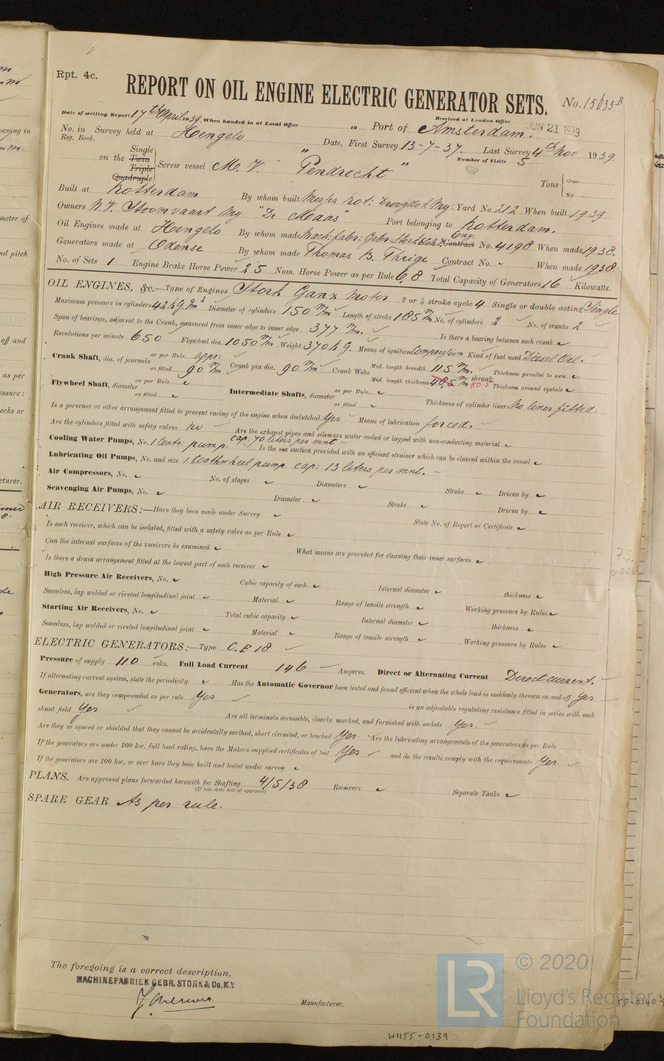 Rpt. 4c.
REPORT ON OIL ENGINE ELECTRIC GENERATOR SETS.
No. 15633B
Date of writing Report 17th April 1939 When handed in at Local Office 19 Port of Amsterdam.
Received at London Office JUN 21 1939
No. in Reg. Book. Survey held at Hengelo Date, First Survey 13-7-37. Last Survey 4th Nov 1939
Number of Visits 5
on the Single Twin Triple Quadruple Screw vessel M.V. "Pendrecht" Tons Gross Net
Built at Rotterdam By whom built Yard No. 212 When built 1939
Owners N.V. Stoomvaart My. "De Maas" Port belonging to Rotterdam.
Oil Engines made at Hengelo By whom made Mach: fabr: Gebr Stork & Co Eng. Contract No. 4198 When made 1938.
Generators made at Odense By whom made Thomas B. Thrige Contract No. " When made 1938
No. of Sets 1 Engine Brake Horse Power 25 Nom. Horse Power as per Rule 6,8 Total Capacity of Generators 16 Kilowatts.
OIL ENGINES, &c.—Type of Engines Stork Ganz Motor 2 or 4 stroke cycle 4 Single or double acting Single
Maximum pressure in cylinders 42 Diameter of cylinders 150 m/m Length of stroke 185 m/m No. of cylinders 2 No. of cranks 2
Span of bearings, adjacent to the Crank, measured from inner edge to inner edge 377 m/m. Is there a bearing between each crank ✓
Revolutions per minute 650 Flywheel dia. 1050 m/m Weight 370 kg. Means of ignition Compression Kind of fuel used Diesel Oil.
Crank Shaft, dia. of journals as per Rule appr. as fitted 90 m/m Crank pin dia. 90 m/m Crank Webs Mid. length breadth 115 m/m. Thickness parallel to axis ✓
Mid. length thickness shrunk Thickness around eyehole ✓
Flywheel Shaft, diameter as per Rule ✓ as fitted ✓ Intermediate Shafts, diameter as per Rule ✓ as fitted ✓ Thickness of cylinder liners No liners fitted.
Is a governor or other arrangement fitted to prevent racing of the engine when declutched Yes Means of lubrication forced.
Are the cylinders fitted with safety valves no Are the exhaust pipes and silencers water cooled or lagged with non-conducting material ✓
Cooling Water Pumps, No. 1 Centr: pump cap: 70 liters per mnt Is the sea suction provided with an efficient strainer which can be cleared within the vessel ✓
Lubricating Oil Pumps, No. and size 1 toothwheel pump cap: 13 liters per mnt.
Air Compressors, No. ✓ No. of stages ✓ Diameters ✓ Stroke ✓ Driven by ✓
Scavenging Air Pumps, No. ✓ Diameter ✓ Stroke ✓ Driven by ✓
AIR RECEIVERS:—Have they been made under Survey ✓ State No. of Report or Certificate ✓
Is each receiver, which can be isolated, fitted with a safety valve as per Rule ✓
Can the internal surfaces of the receivers be examined ✓ What means are provided for cleaning their inner surfaces ✓
Is there a drain arrangement fitted at the lowest part of each receiver ✓
High Pressure Air Receivers, No. ✓ Cubic capacity of each ✓ Internal diameter ✓ thickness ✓
Seamless, lap welded or riveted longitudinal joint ✓ Material ✓ Range of tensile strength ✓ Working pressure by Rules ✓
Starting Air Receivers, No. ✓ Total cubic capacity ✓ Internal diameter ✓ thickness ✓
Seamless, lap welded or riveted longitudinal joint ✓ Material ✓ Range of tensile strength ✓ Working pressure by Rules ✓
ELECTRIC GENERATORS:—Type C.E 18
Pressure of supply 110 volts. Full Load Current 146 Amperes. Direct or Alternating Current Direct current.
If alternating current system, state the periodicity ✓ Has the Automatic Governor been tested and found efficient when the whole load is suddenly thrown on and off Yes
Generators, are they compounded as per rule Yes is an adjustable regulating resistance fitted in series with each
shunt field Yes Are all terminals accessible, clearly marked, and furnished with sockets Yes.
Are they so spaced or shielded that they cannot be accidentally earthed, short circuited, or touched Yes. Are the lubricating arrangements of the generators as per Rule
If the generators are under 100 kw. full load rating, have the Makers supplied certificates of test Yes and do the results comply with the requirements Yes.
If the generators are 100 kw. or over have they been built and tested under survey ✓
PLANS. Are approved plans forwarded herewith for Shafting 4/5/38 Receivers ✓ Separate Tanks ✓
(If not, state date of approval)
SPARE GEAR As per rule.
The foregoing is a correct description,
MACHINEFABRIEK GEBR. STORK & Co. N.V.
Manufacturer.
W1155-0139
LR
© 2020
Lloyd's Register
Foundation